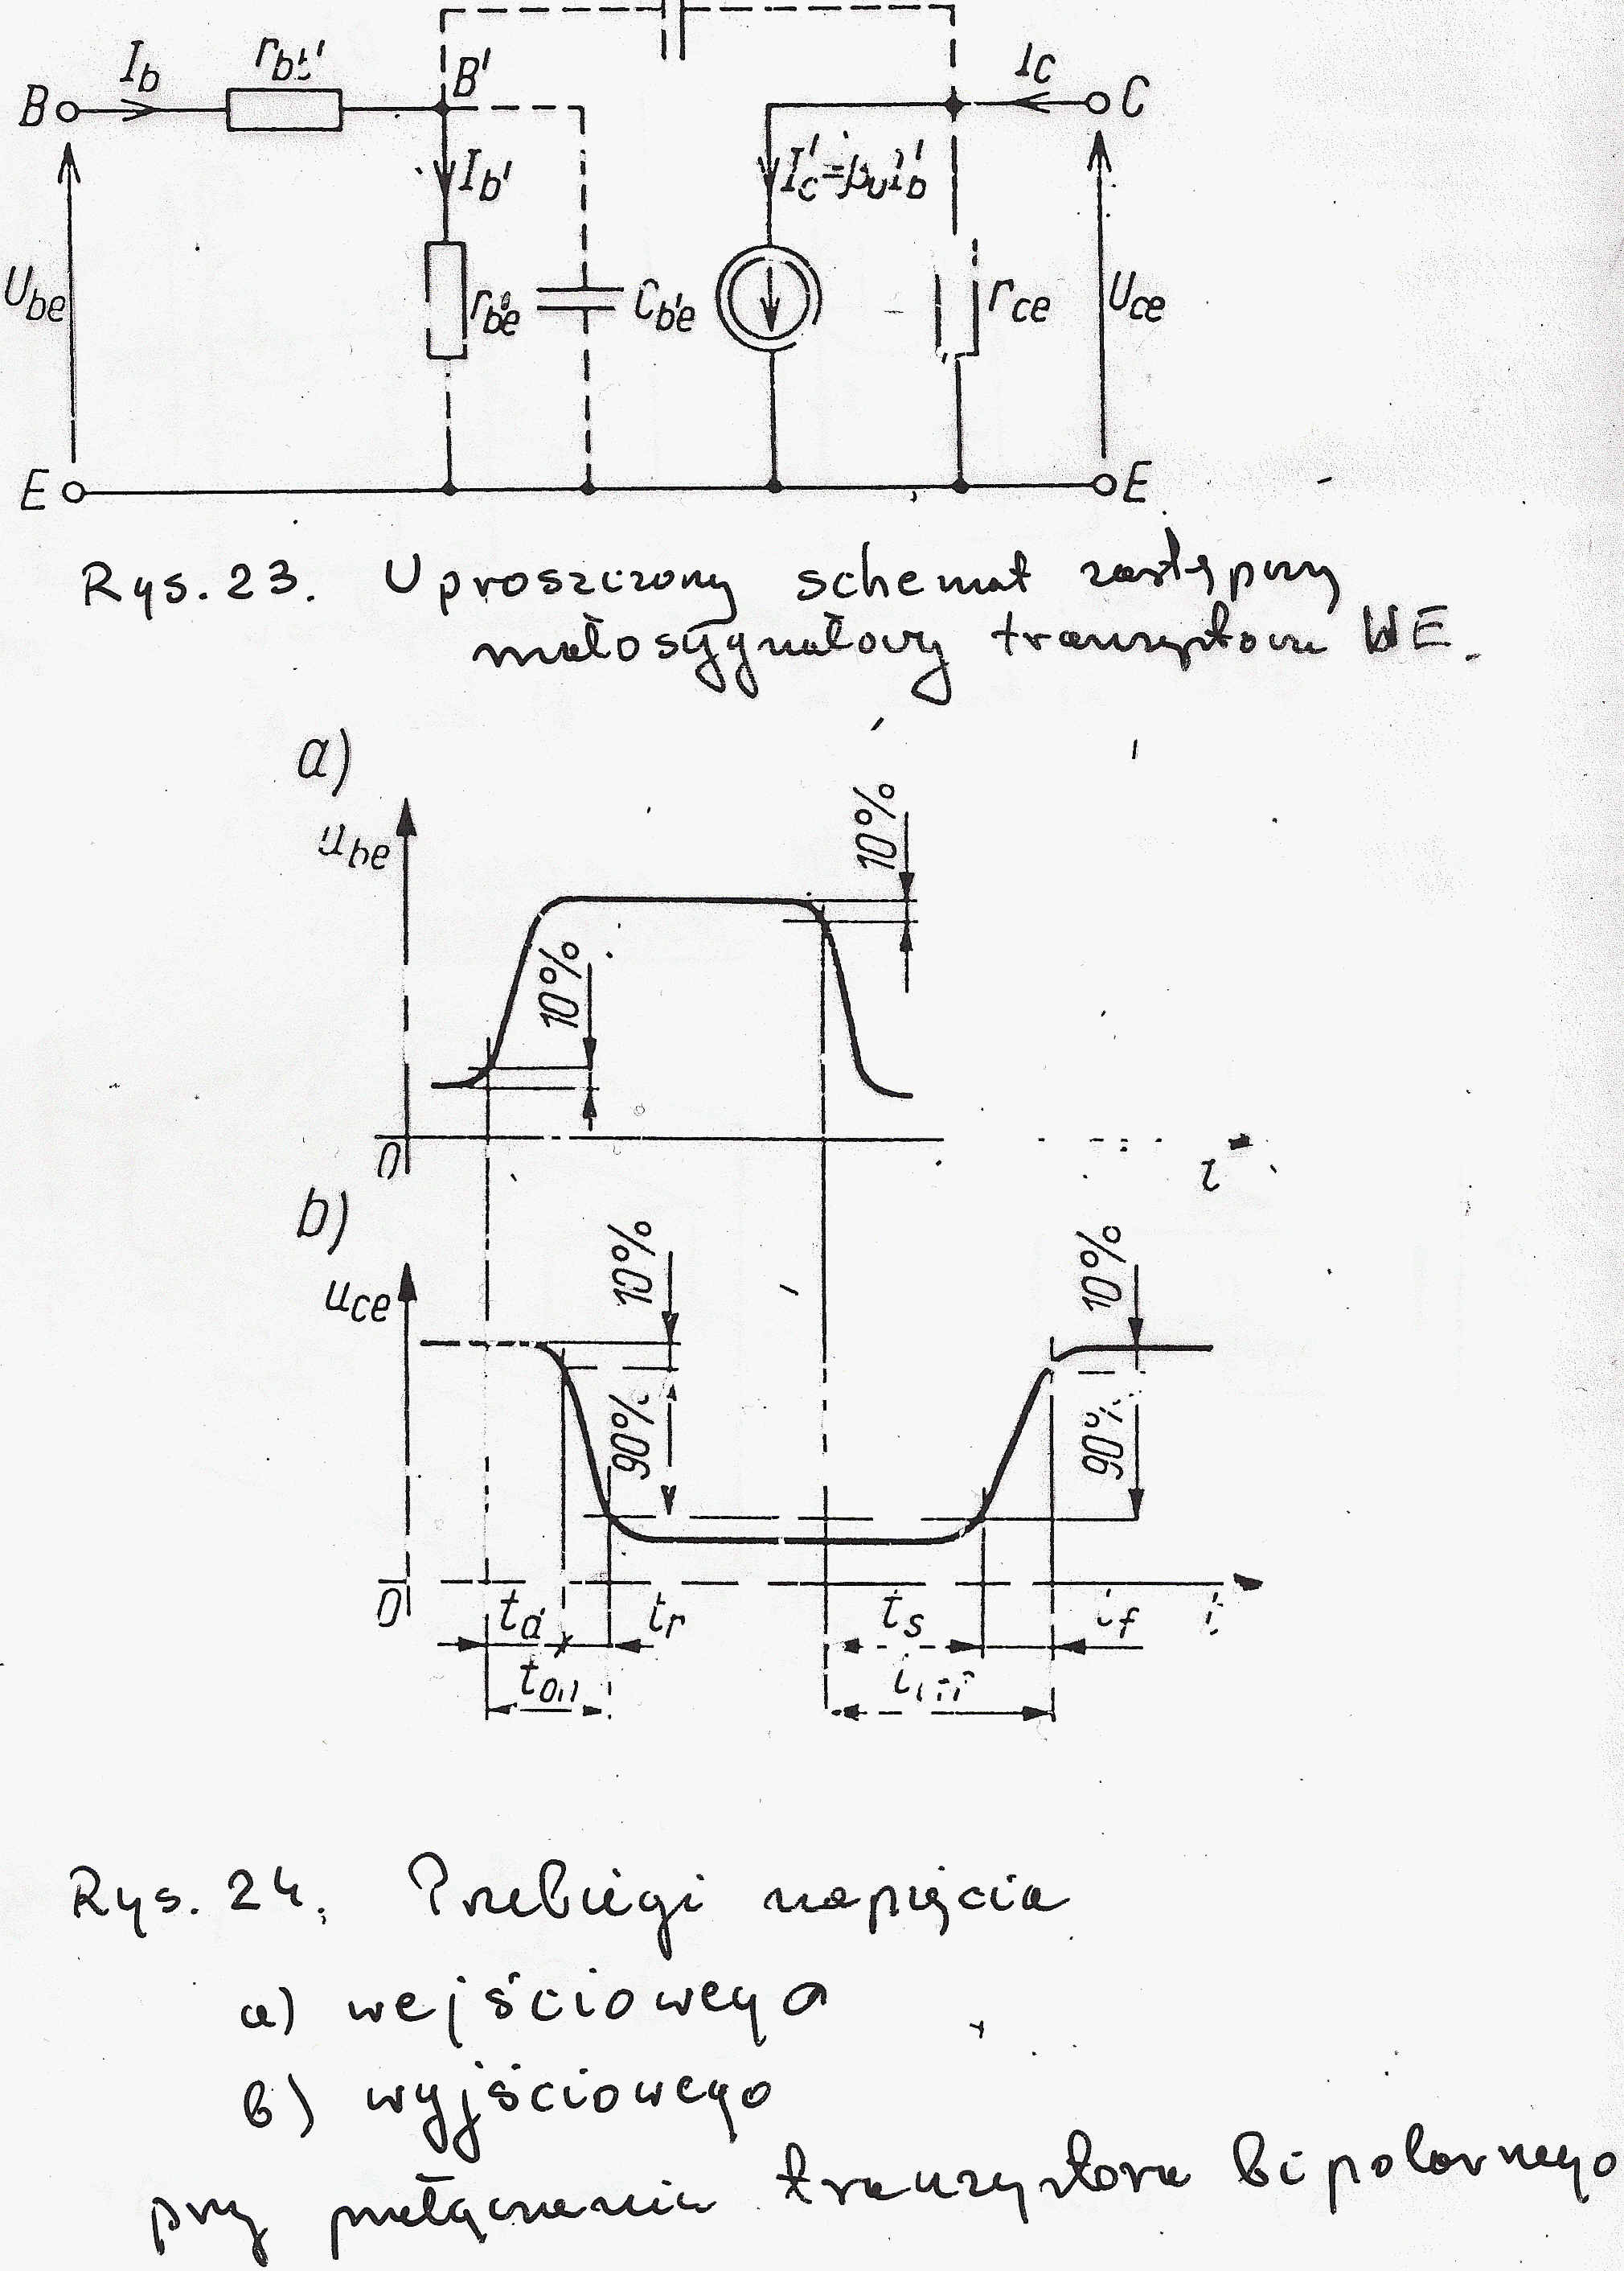 I_b
r_bb'
B'
I_c
B
C
I_b'
I'_c=β_0 I'_b
U_be
r_b'e
C_b'e
r_ce
U_ce
E
E
Rys. 23. Uproszczony schemat zastępczy
małosygnałowy tranzystora WE.
a)
u_be
10%
10%
0
t
b)
u_ce
10%
10%
90%
90%
0
t_d
t_r
t_s
t_f
t
t_on
t_off
Rys. 24. Przebiegi napięcia
a) wejściowego
b) wyjściowego
przy przełączaniu tranzystora bipolarnego